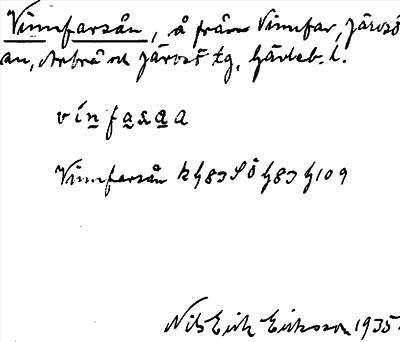 Vinnfarsån, å från Vinnfar, Järvsö
sn, Arbrå och Järvsö tg, Gävleb. l.
vínfasaa
Vinnfarsån k h83SÖ h83 h109
Nils Erik Eriksson 1935.